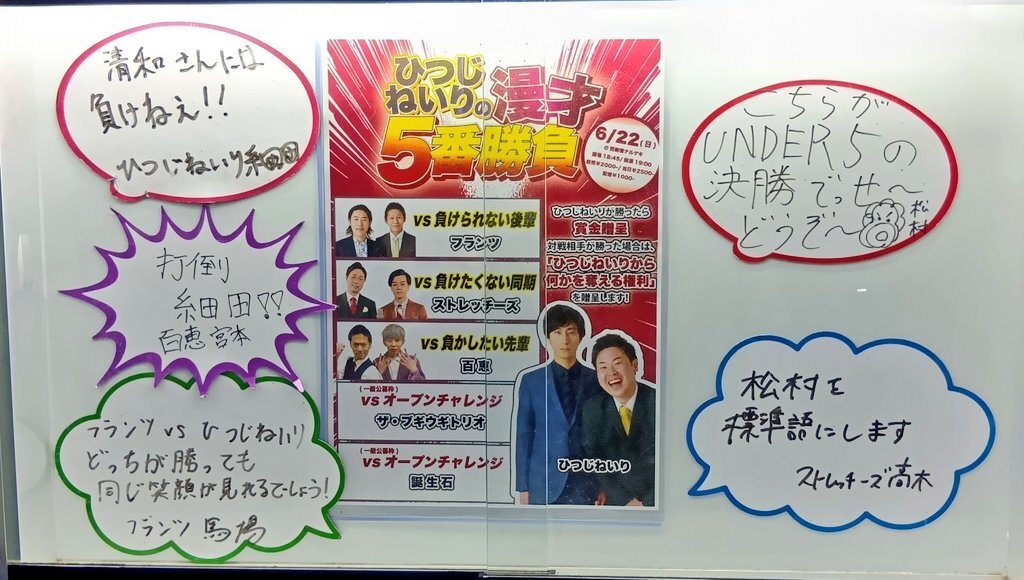 清和さんには
負けねえ!!
ひつじねいり細田
打倒
細田!!
百恵 宮本
フランツ vs ひつじねいり
どっちが勝っても
同じ笑顔が見れるでしょう!
フランツ 馬場
ひつじ
ねいりの漫才
5番勝負
6/22(日)
@西新宿ナルゲキ
開場18:45/開演19:00
前売¥2000-/当日¥2500-
配信¥1000-
vs 負けられない後輩
フランツ
vs 負けたくない同期
ストレッチーズ
vs 負かしたい先輩
百恵
(一般公募枠)
vs オープンチャレンジ
ザ・ブギウギトリオ
(一般公募枠)
vs オープンチャレンジ
誕生石
ひつじねいりが勝ったら
賞金贈呈
対戦相手が勝った場合は、
「ひつじねいりから
何かを奪える権利」
を贈呈します!
ひつじねいり
こちらが
UNDER5の
決勝でっせ〜
どうぞ〜
松村
松村を
標準語にします
ストレッチーズ高木